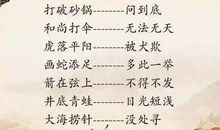 打破砂锅-------问到底
和尚打伞-------无法无天
虎落平阳-------被犬欺
画蛇添足-------多此一举
箭在弦上-------不得不发
井底青蛙-------目光短浅
大海捞针-------没处寻